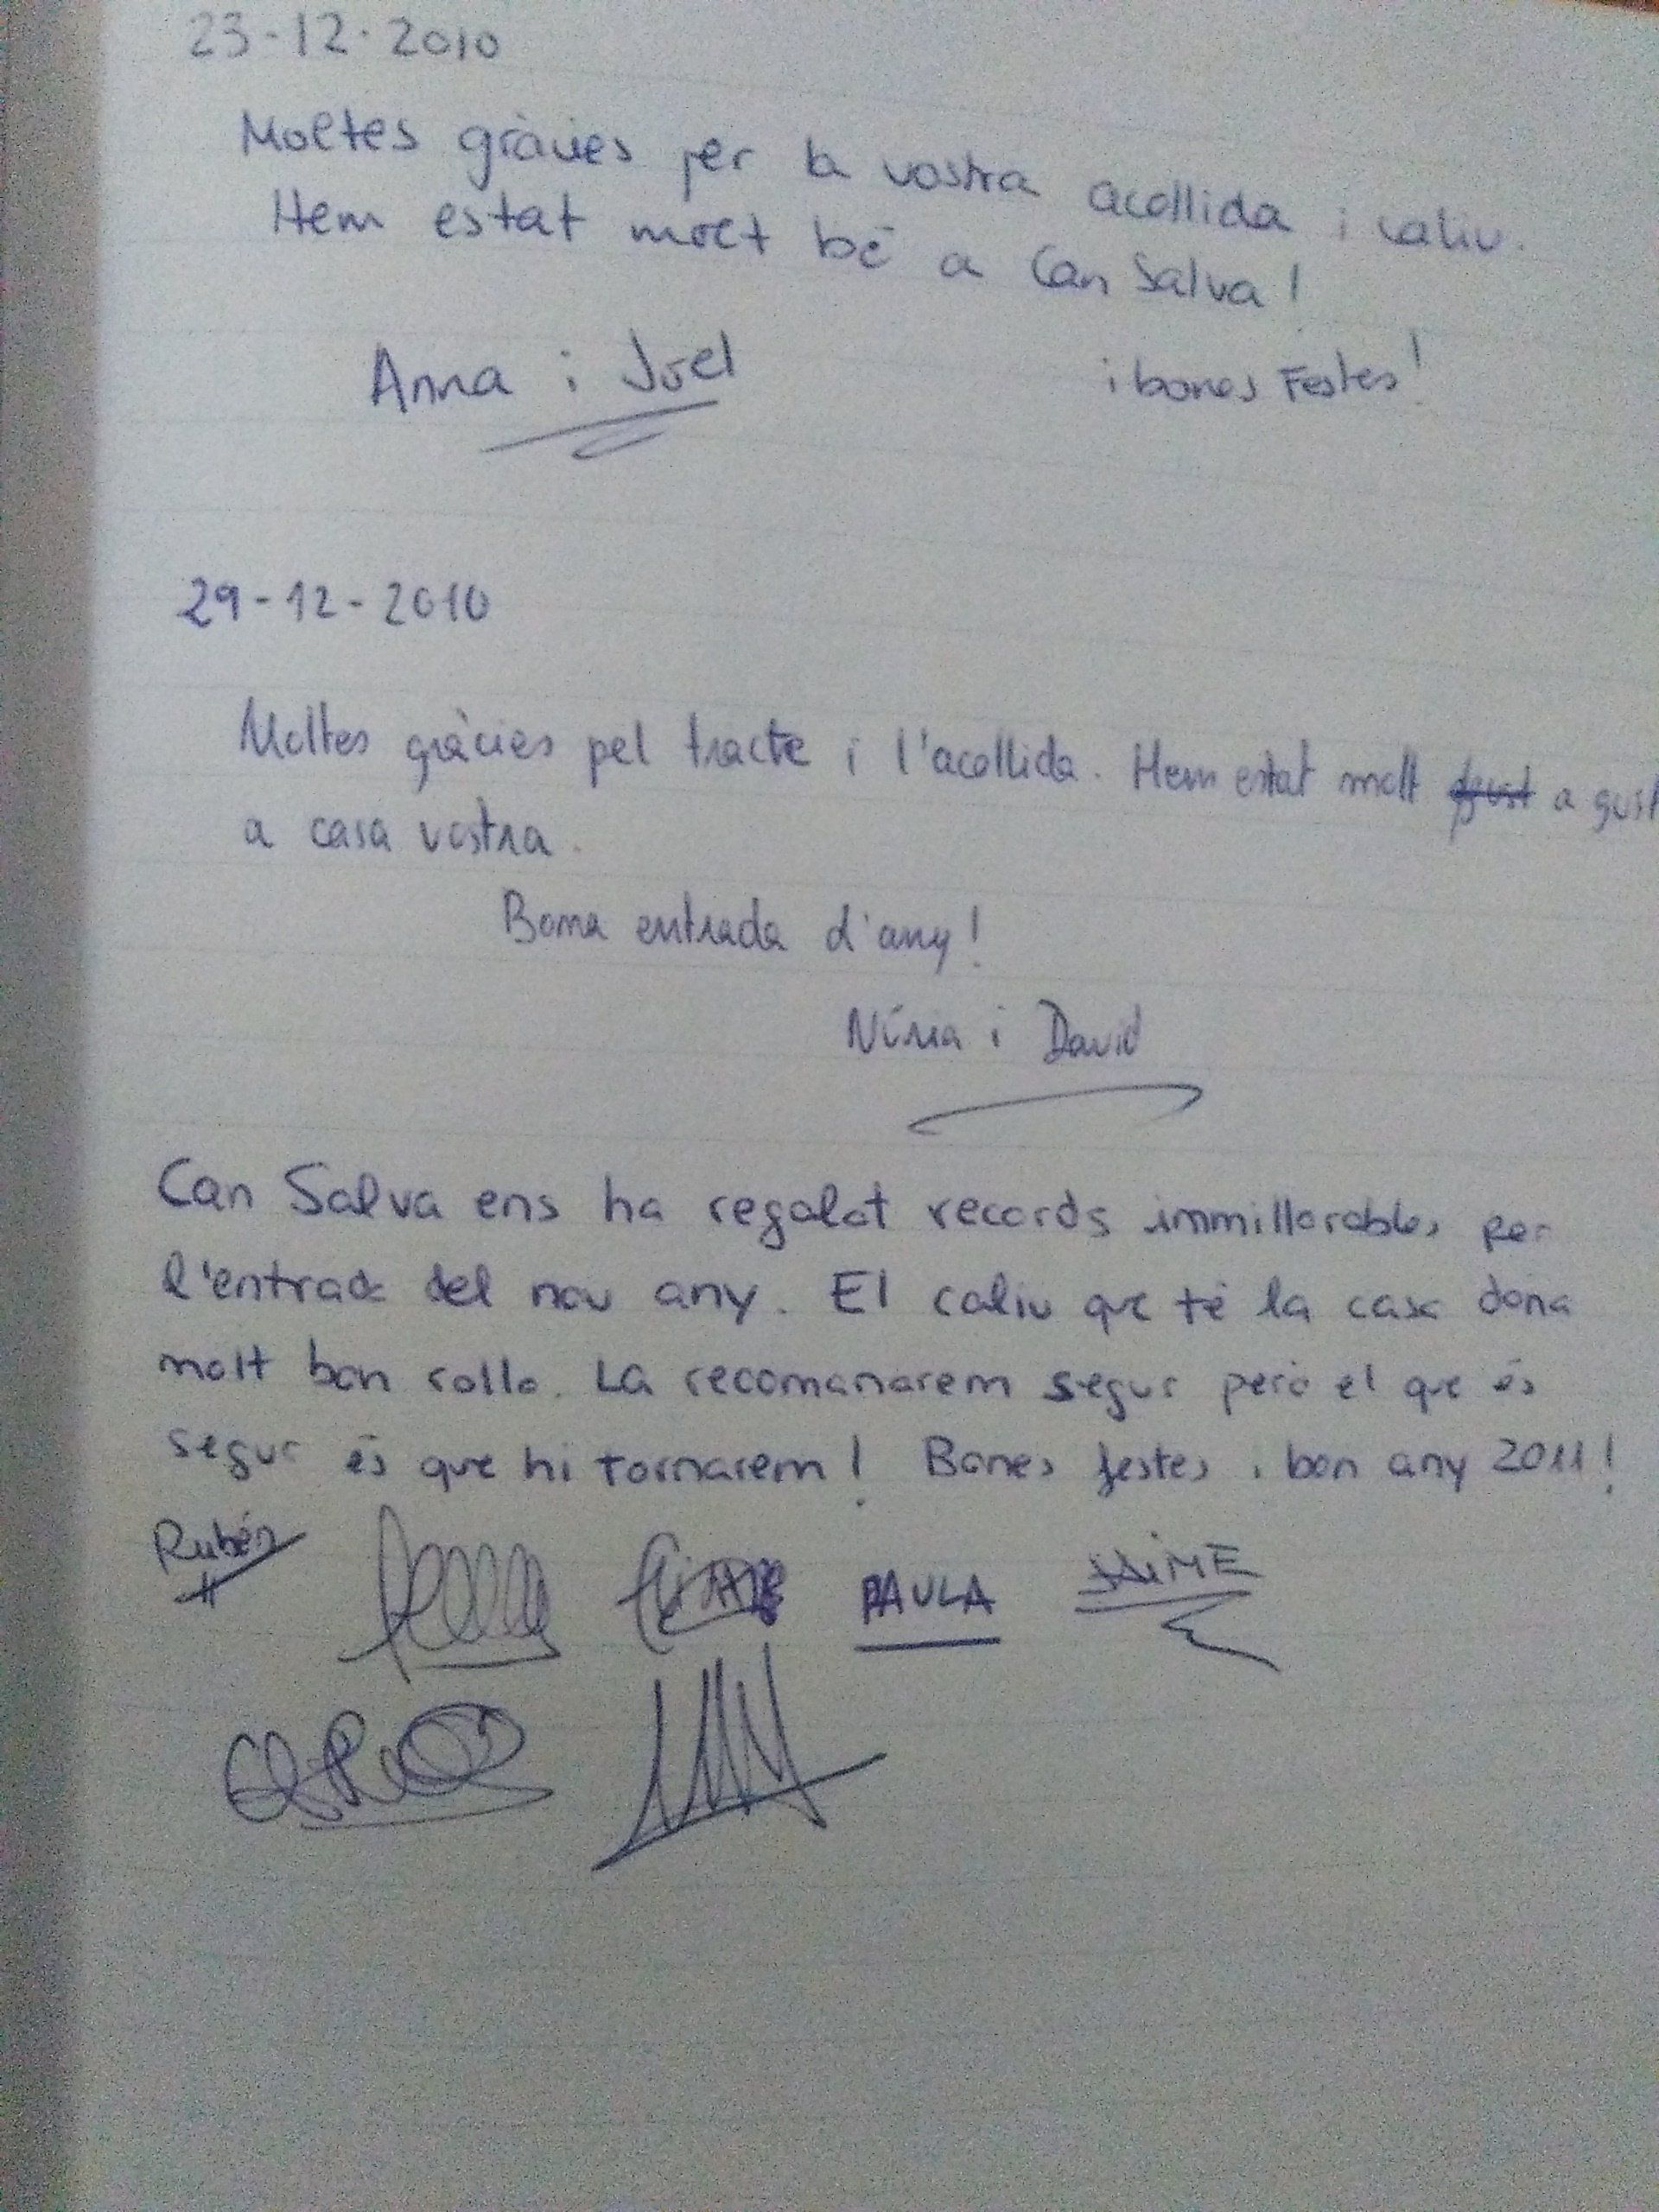 23-12-2010
Moltes gràcies per la vostra acollida i caliu.
Hem estat molt bé a Can Salva!
Anna i Joel
i bones Festes!
29-12-2010
Moltes gràcies pel tracte i l'acollida. Hem estat molt a gust
a casa vostra.
Bona entrada d'any!
Núria i David
Can Salva ens ha regalat records immillorables per
l'entrada del nou any. El caliu que té la casa dóna
molt bon rollo. La recomanarem segur però el que és
segur és que hi tornarem! Bones festes i bon any 2011!
Rubén PAULA JAIME